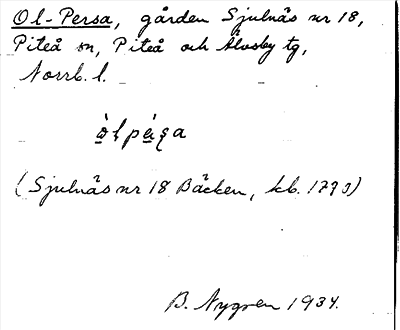 Ol-Persa, gården Sjulnäs nr 18,
Piteå sn, Piteå och Älvsby tg,
Norrb. l.
(Sjulnäs nr 18 Bäcken, kb. 1790)
B. Nygren 1934.